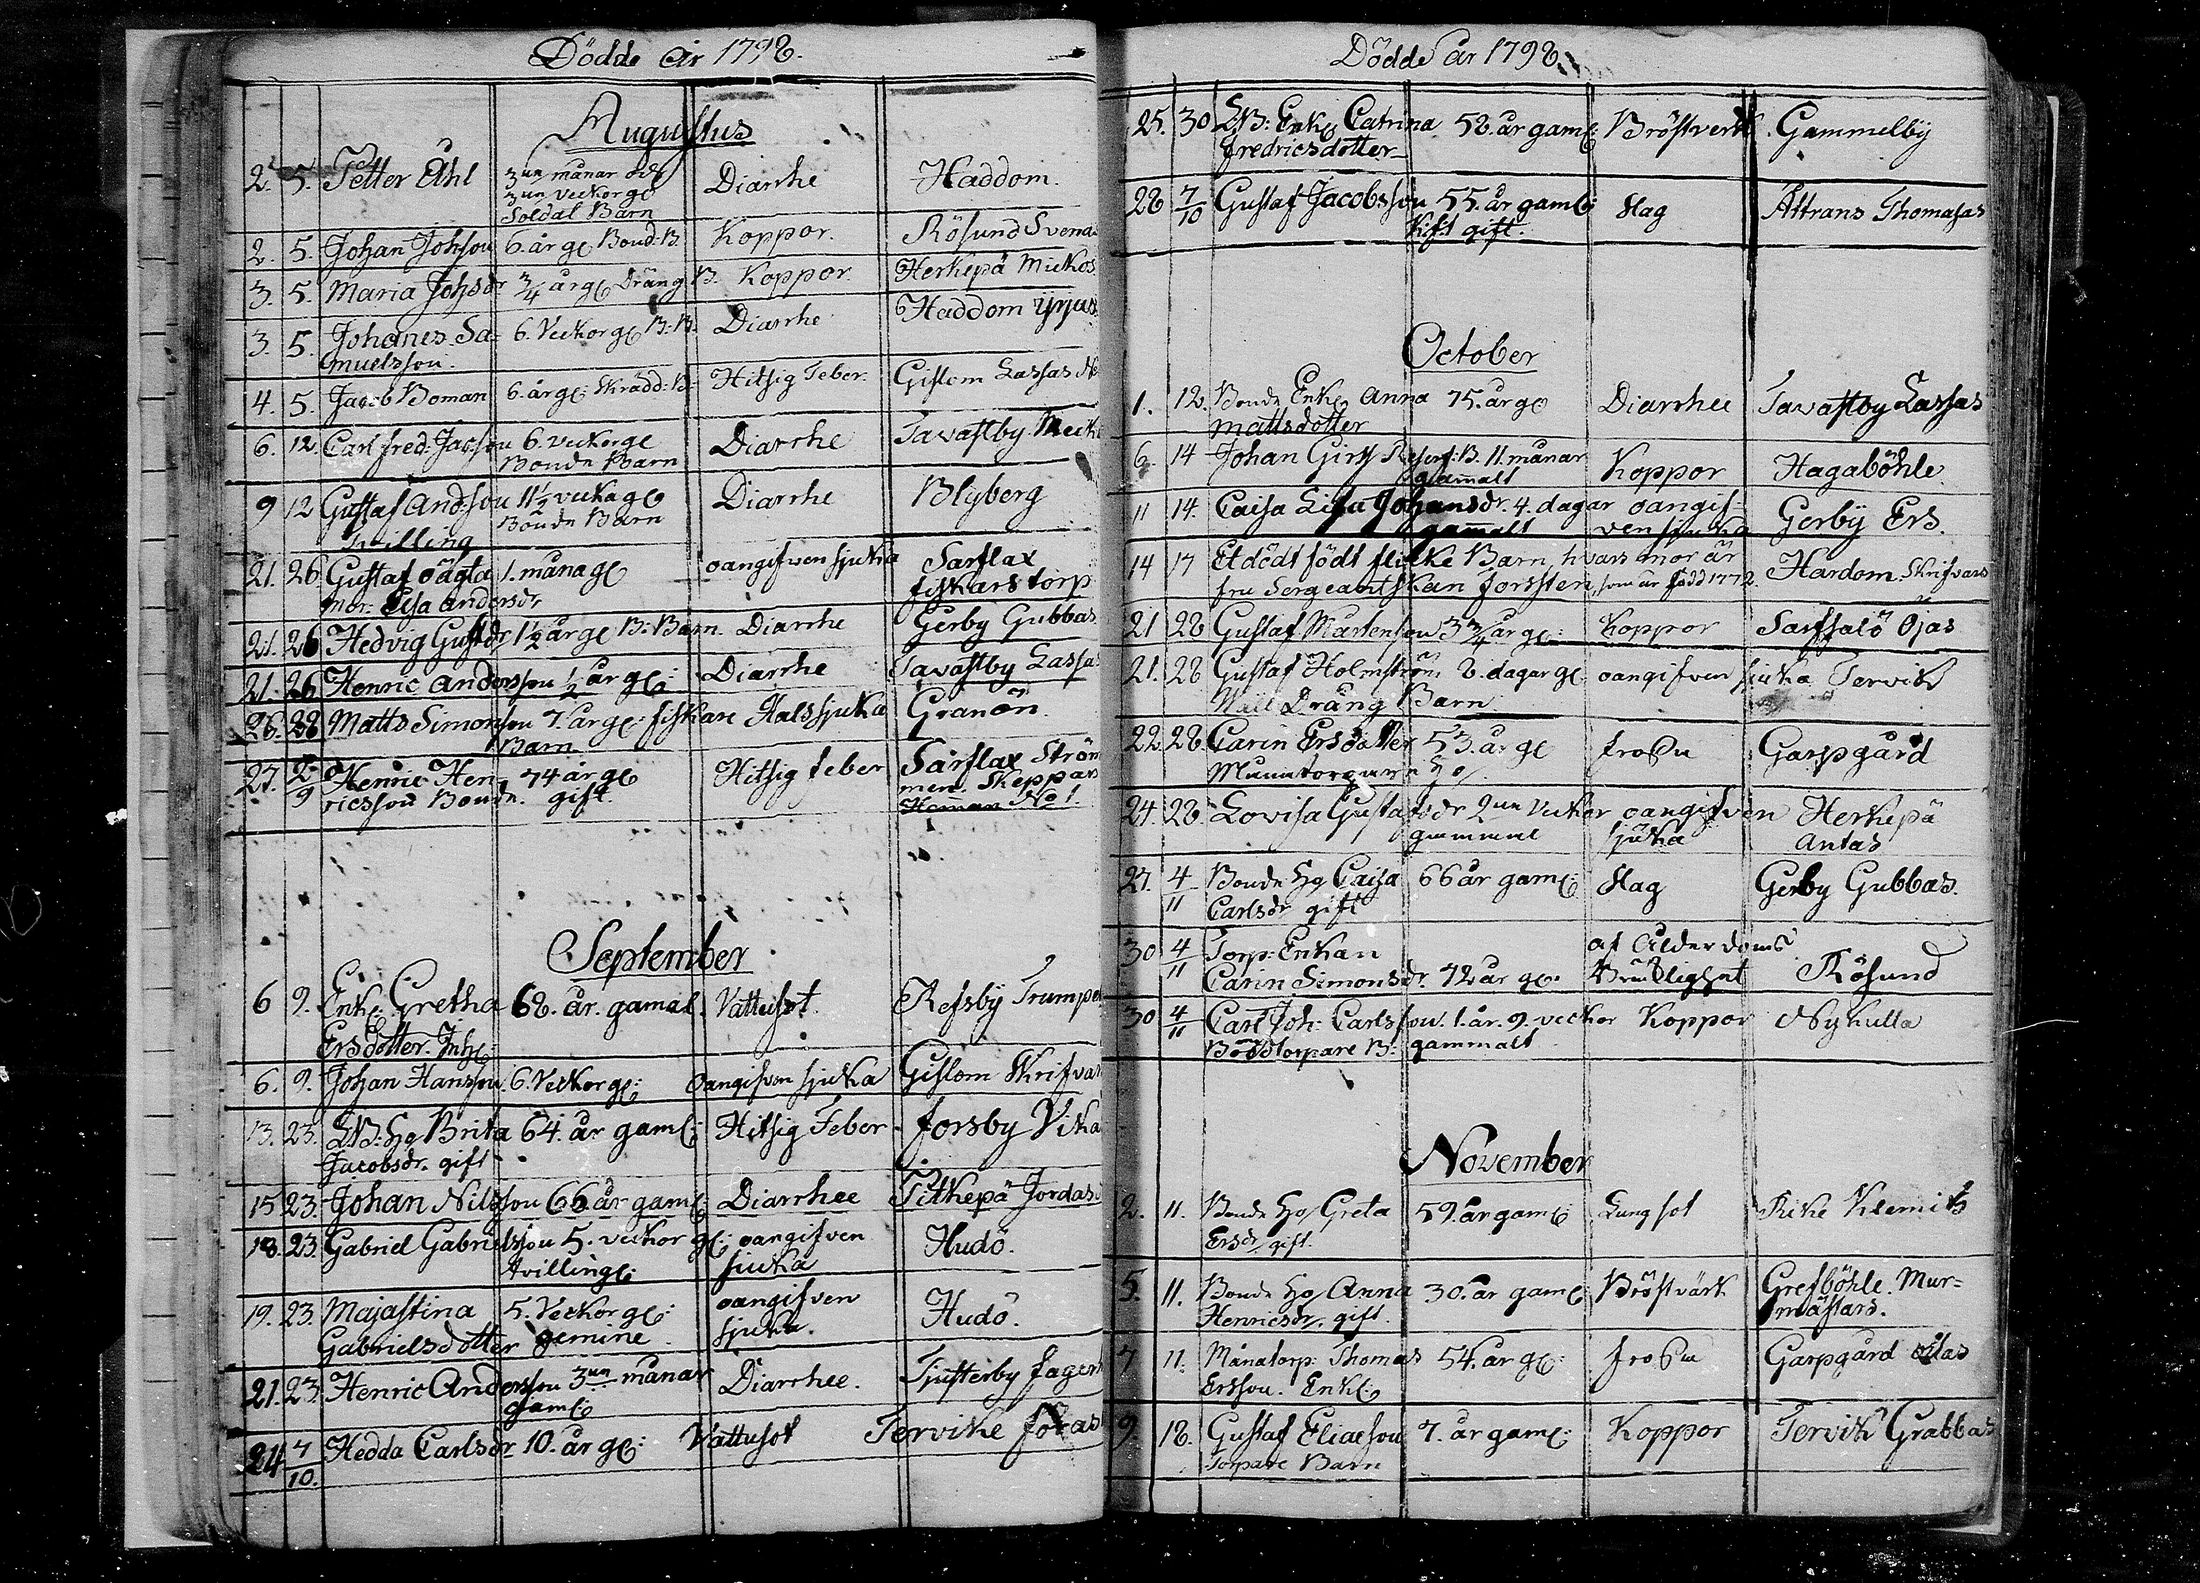 Dödde år 1798.
Augustus
2. 5. Petter Ahl 3un månar och Diarrhe Haddom.
3un veckor gl
Soldat Barn
2. 5. Johan Johsson 6. år gl Bond: B. Koppor. Rösund Svenas
3. 5. Maria Johsdr 3/4 år gl Dräng B. Koppor. Herkepä Mickos
3. 5. Johanes Sa- 6. Veckor gl B: B. Diarrhe Haddom
muelsson.
4. 5. Jacob Boman 6. år gl: Skrädd: B: Hitsig Feber. Gislom Lassas
6. 12. Carl fred: Jacsson 6. veckor gl Diarrhe Tavastby
Bonde Barn
9 12 Gustaf Andsson 11 1/2 vecka gl Diarrhe Blyberg
Tvilling Bonde Barn
21. 26 Gustaf oägta 1. måna gl oangifven sjuka Sarflax
mor. Lisa Andersdr fiskars torp
21. 26 Hedvig Gustdr 1 1/2 år gl B: Barn. Diarrhe Gerby Gubbas
21. 26 Henric Andersson 1/2 år gl: Diarrhe Tavastby Lassas
26. 28 Matts Simonsson 7. år gl: fiskare Halssjuka Granön.
Barn
27. 2/9 Henric Hen- 74 år gl Hitsig feber Sarflax Ström
ricsson Bonde. gift. men. Skeppars
Heman No 1.
September
6 9. Enk: Gretha 68. år. gamal. Vattusot. Refsby
Ersdotter. Inh:
6. 9. Johan Hansson 6. Veckor gl: oangifven sjuka Gislom Skrifvar
13. 23. LB: Ho Brita 64. år gaml: Hitsig Feber forsby
Jacobsdr. gift
15 23. Johan Nilsson 66. år gaml: Diarrhee Pitkepä Jordas
18. 23. Gabriel Gabrielsson 5. veckor gl: oangifven Hudö.
tvilling: sjuka
19. 23. Majastina 5. Veckor gl: oangifven Hudö.
Gabrielsdotter gemine sjuka.
21. 23. Henric Andersson 3un månar Diarrhee. Tjusterby
gaml:
24 7/10. Hedda Carlsdr 10. år gl: Vattusot Tervike
Dödde år 1798.
25. 30 LB: Enk: Catrina 58. år gaml: Bröstverk Gammelby
Fredricsdotter
28 7/10 Gustaf Jacobsson 55. år gaml: Slag Åttrans Thomasas
gift.
October
1. 12. Bonde Enk: Anna 75. år gl Diarrhee Tavastby Lassas
Mattsdotter
6. 14 Johan B. 11. månar Koppor Hagaböhle
gamalt
11 14. Caisa Lisa Johansdr. 4. dagar oangif- Gerby Ers.
gamalt ven sjuka
14 17 Et dödt födt flicke Barn, hvars mor är Hardom Skrifvars
fru Sergeantskan Forssten, som är född 1772.
21 28 Gustaf Mårtensson 3 3/4 år gl: Koppor Sarfsalö Ojas
21. 28 Gustaf Holmström 8. dagar gl oangifven sjuka Tervik
Dräng Barn
22. 28. Carin Ersdotter 53. år gl frossu Garpgård
Ho
24. 28. Lovisa Gustafsdr 2un Veckor oangifven Herkepä
gammal sjuka Antas
27. 4/11 Bonde Ho Caisa 66 år gaml: Slag Gerby Gubbas.
Carlsdr gift
30 4/11 Torp: Enkan af Ålderdoms Rösund
Carin Simonsdr. 72 år gl: Bräcklighet
30 4/11 Carl Joh: Carlsson. 1. år. 9. veckor Koppor Nykulla
B: gammalt
November
2. 11. Bonde Ho Greta 59. år gaml: Lungsot Rike Klemits
Ersdr gift.
5. 11. Bonde Ho Anna 30. år gaml: Bröstvärk Grefböhle. Mur=
Henricsdr. gift. mästars.
7 11. Månatorp: Thomas 54. år gl: frossu Garpgård
Ersson. Enkl:
9. 18. Gustaf Eliaesson 7. år gaml: Koppor Tervik Grabbas
Torpare Barn